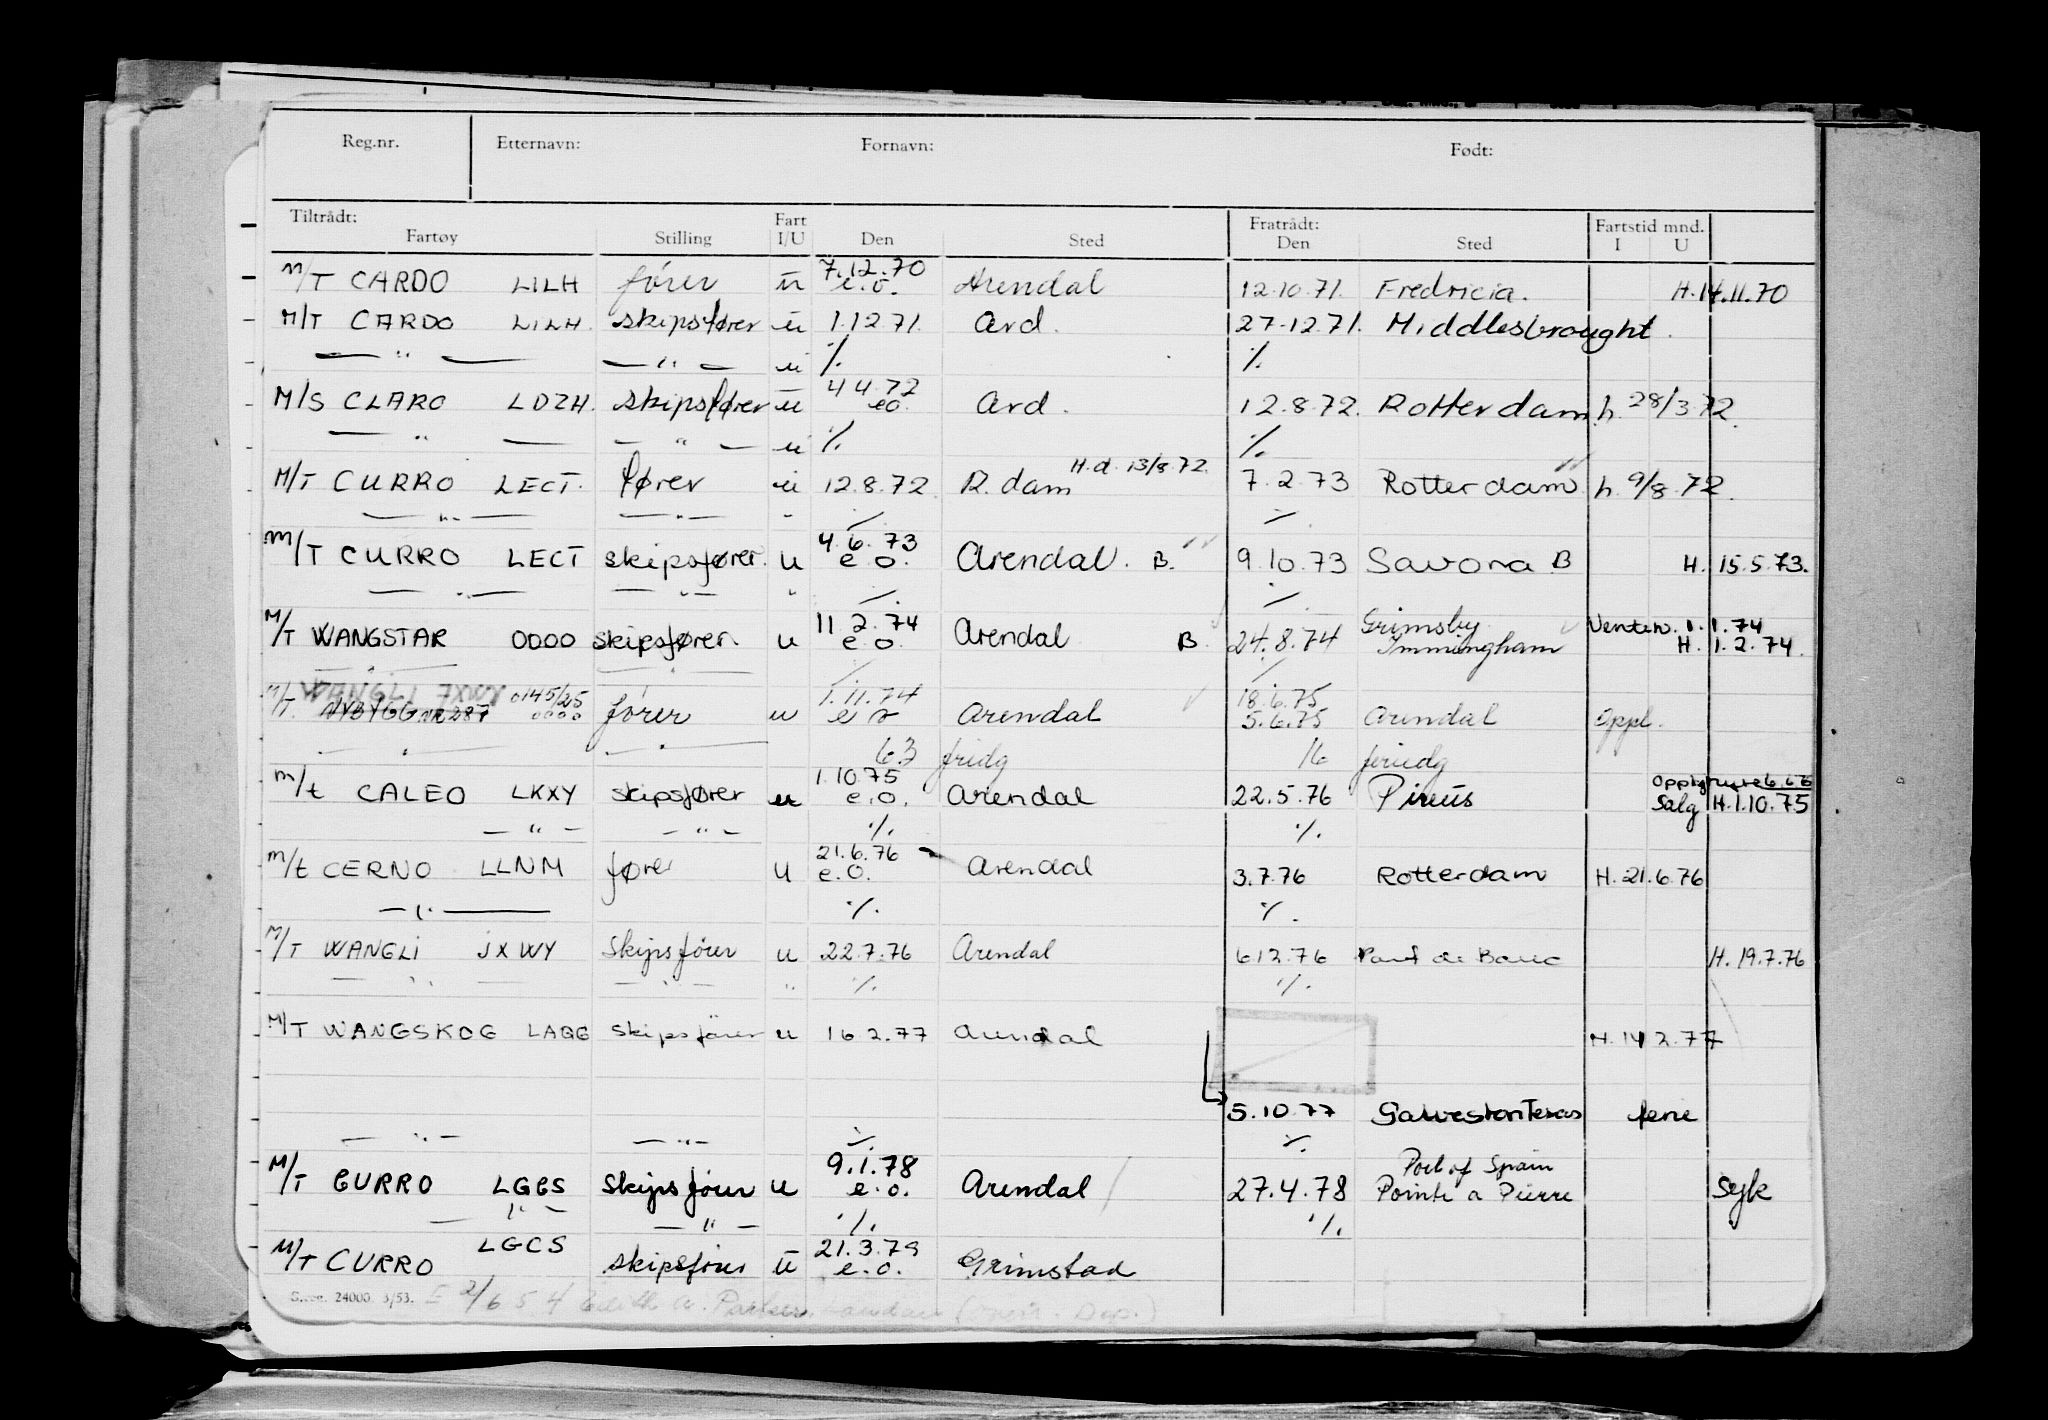 Reg.nr. Etternavn: Fornavn: Født:
Tiltrådt: Fart Fratrådt: Fartstid mnd.
Fartøy Stilling I/U Den Sted Den Sted I U
M/T CARDO LILH fører u 7.12.70 e.o. Arendal 12.10.71. Fredricia. H.14.11.70
M/T CARDO LILH. skipsfører u 1.12.71. Ard. 27.12.71. Middlesbrought.
— " — — " — u % %
M/S CLARO LDZH. skipsfører u 4 4.72 eo. Ard. 12.8.72. Rotterdam h. 28/3.72.
— " — — " — u % %
M/T CURRO LECT. fører u 12.8.72. R.dam H.d. 13/8.72. 7.2.73 Rotterdam h. 9/8.72.
— " — — " — " % %
M/T CURRO LECT skipsfører. u 4.6.73 e.o. Arendal. B. 9.10.73 Savona B H. 15.5.73.
— " — — " — " % %
M/T WANGSTAR 0000 skipsfører. u 11.2.74 e.o. Arendal B. 24.8.74 Grimsby Immingham Ventew. 1.1.74 H. 1.2.74.
— " — — " — % %
M/T WANGLI 7XWY 0145/25
NYBYGG NR 287 0000 fører u 1.11.74 e o Arendal 18.6.75 5.6.75 Arendal Oppl.
— " — — " — 63 fridg 16 feriedg
M/t CALEO LKXY skipsfører u 1.10.75 e.o. Arendal 22.5.76 Pireus Salg H.1.10.75
— " — — " — % %
M/t CERNO LLNM fører u 21.6.76 e.o. Arendal 3.7.76 Rotterdam H. 21.6.76
— " — % %
M/T WANGLI JXWY Skipsfører u 22.7.76 Arendal 6.12.76 Port de Bouc H. 19.7.76
— " — — " — " % %
M/T WANGSKOG LAGG skipsfører u 16.2.77 Arendal H. 14.2.77
5.10.77 Galveston Texas ferie
— " — — " — % %
M/T CURRO LGCS Skipsfører u 9.1.78 e.o. Arendal 27.4.78 Port of Spain Pointe a Pierre Syk
— " — — " — % %
M/T CURRO LGCS skipsfører u 21.3.79 e.o. Grimstad
24000. 3/53. E 2/6 54